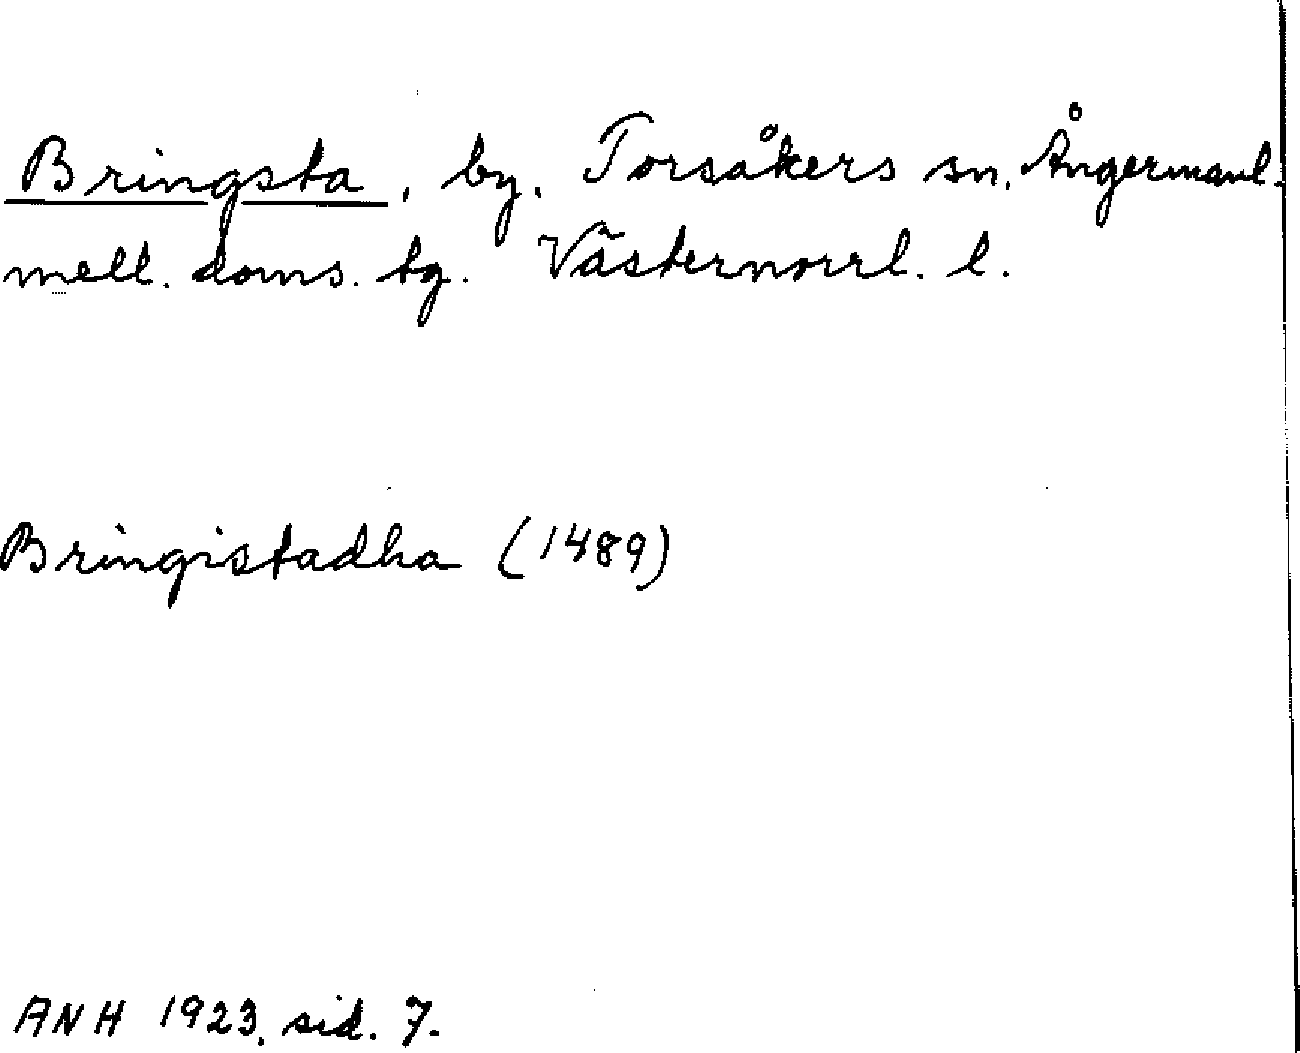 Bringsta, by. Torsåkers sn, Ångermanl.
mell. doms. tg. Västernorrl. l.
Bringistadha (1489)
ANH 1923, sid. 7.